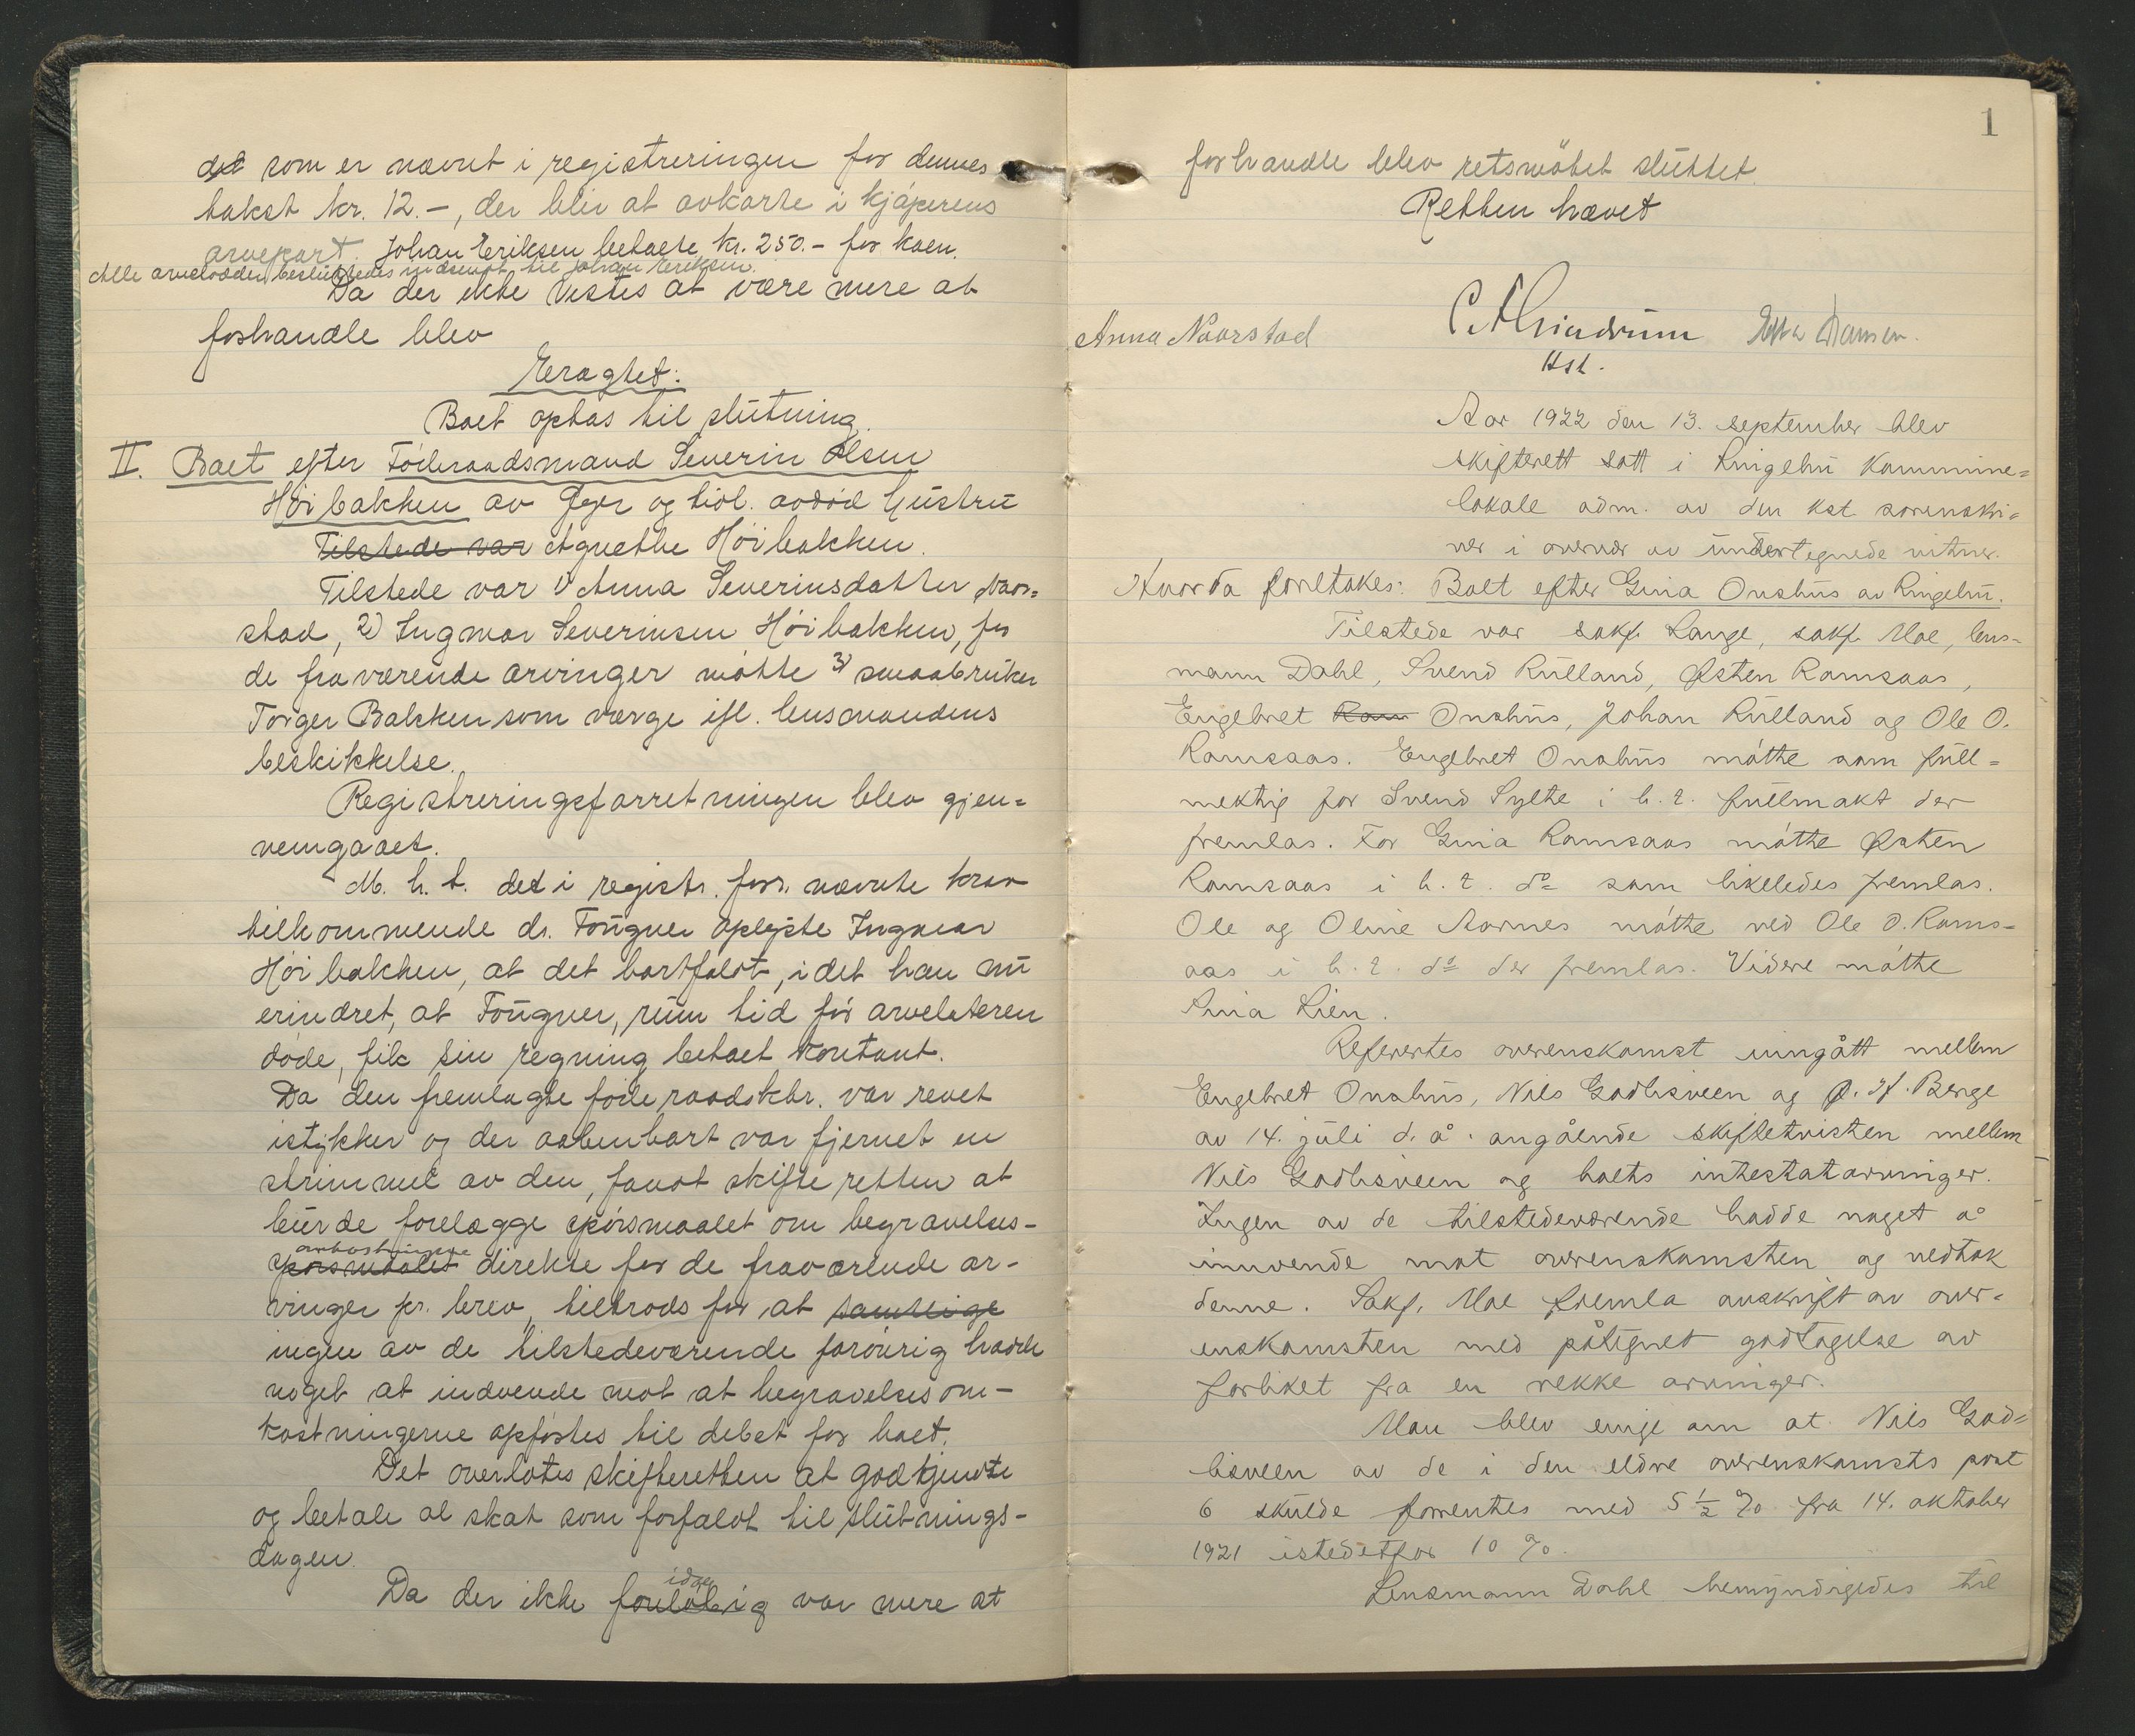 det som er nævnt i registreringen for dennes
takst kr. 12.-, der blir at avkorte i kjøperens
arvepart. Johan Eriksen betaler kr. 250.- for koen.
Alle arvelodder besluttedes indsendt til Johan Eriksen.
Da der ikke vistes at være mere at
forhandle blev
Eragtet:
Boet optas til slutning.
II. Boet efter Føderaadsmand Severin Olsen
Høibakken av Øyer og tidl. avdød hustru
Tilstede var Agnethe Høibakken.
Tilstede var 1) Anna Severinsdatter Naar=
stad, 2) Ingmar Severinsen Høibakken, for
de fraværende arvinger møtte 3) smaabruker
Torger Bakken som værge ifl. lensmandens
beskikkelse.
Registreringsforretningen blev gjen=
nemgaaet.
M. h. t. det i registr. forr. nævnte krav
tilkommende dr. Tougner oplyste Ingmar
Høibakken, at det bortfaldt, idet han nu
erindret, at Tougner, rum tid før arvelateren
døde, fik sin regning betalt kontant.
Da den fremlagte føderaadskbr. var revet
istykker og der aabenbart var fjernet en
strimmel av den, fandt skifteretten at
burde forelægge spørsmaalet om begravelses-
omkostningene
spørsmaalet direkte for de fraværende ar-
vinger pr. brev, tiltrods for at samtlige
ingen av de tilstedeværende forøvrig hadde
noget at indvende mot at begravelsesom-
kostningerne opførtes til debet for boet.
Det overlotes skifteretten at godkjende
og betale al skat som forfaldt til slutnings-
dagen.
idag
Da der ikke foreløbig var mere at
1
forhandle blev retsmøtet sluttet.
Retten hævet
Anna Naarstad
Hst.
Aar 1922 den 13. september blev
skifterett satt i Ringebu kommune=
lokale adm. av den kst. sorenskri=
ver i overvær av undertegnede vitner.
Hvorda foretokes: Boet efter Gina Onshus av Ringebu.
Tilstede var sakf. Lange, sakf. Moe, lens=
mann Dahl, Svend Rulland, Østen Ramsaas,
Engebret Ram Onshus, Johan Rulland og Ole O.
Ramsaas. Engebret Onshus møtte som full=
mektig for Svend Sylte i h. t. fullmakt der
fremlas. For Gina Ramsaas møtte Østen
Ramsaas i h. t. do som likeledes fremlas.
Ole og Oline Aarnes møtte ved Ole O. Rams=
aas i h. t. do der fremlas. Videre møtte
Lina Lien.
Referertes overenskomst inngått mellem
Engebret Onshus, Nils Godlisveen og P. H. Berge
av 14. juli d. å. angående skiftetvisten mellem
Nils Godlisveen og boets intestatarvinger.
Ingen av de tilstedeværende hadde noget å
innvende mot overenskomsten og vedtok
denne. Sakf. Moe fremla avskrift av over-
enskomsten med påtegnet godtagelse av
forliket fra en rekke arvinger.
Man blev enige om at Nils God=
lisveen av de i den eldre overenskomsts post
6 skulde forrentes med 5 1/2 % fra 14. oktober
1921 istedetfor 10 %.
Lensmann Dahl bemyndigedes til